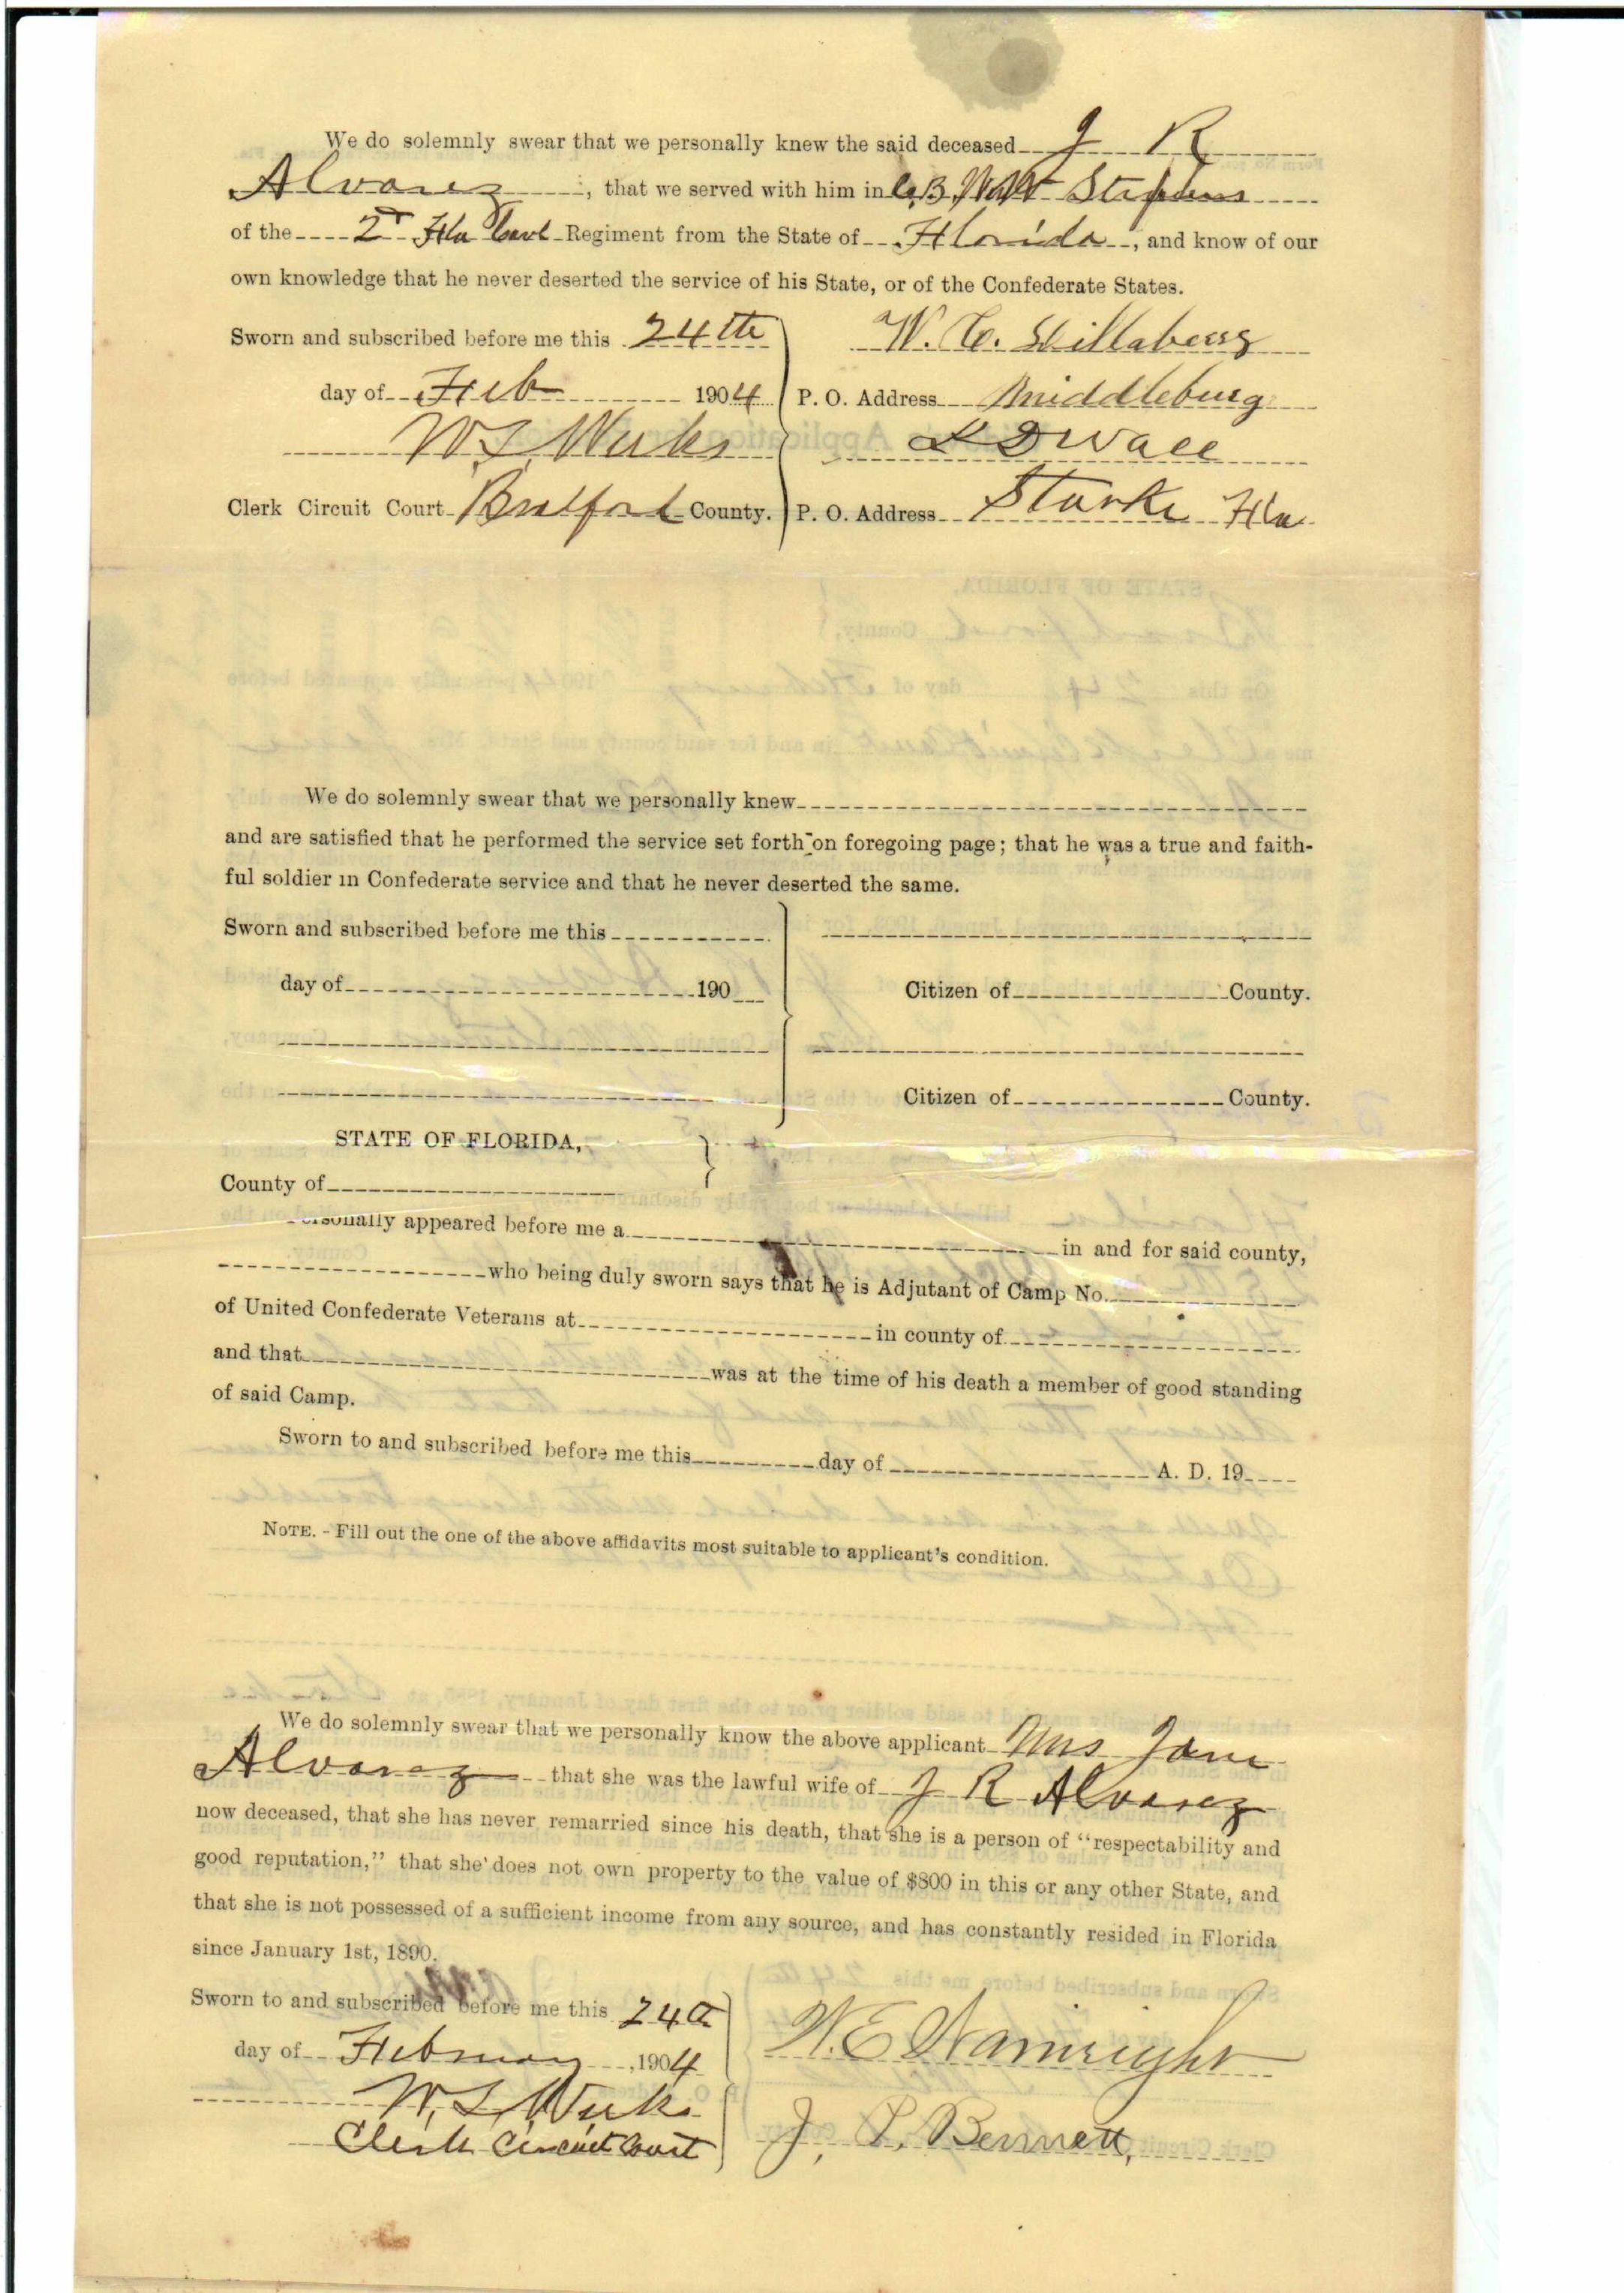 We do solemnly swear that we personally knew the said deceased J R
Alvarez, that we served with him in Co. B. Stephens
of the 2d Fla Cavl Regiment from the State of Florida, and know of our
own knowledge that he never deserted the service of his State, or of the Confederate States.
Sworn and subscribed before me this 24th
W. C.
day of Feb 1904
P. O. Address Middleburg
W. S. Weeks
L D Wall
Clerk Circuit Court Bradford County.
P. O. Address Starke Fla
We do solemnly swear that we personally knew
and are satisfied that he performed the service set forth on foregoing page; that he was a true and faith-
ful soldier in Confederate service and that he never deserted the same.
Sworn and subscribed before me this
day of 190
Citizen of County.
Citizen of County.
STATE OF FLORIDA,
County of
Personally appeared before me a in and for said county,
who being duly sworn says that he is Adjutant of Camp No.
of United Confederate Veterans at in county of
and that was at the time of his death a member of good standing
of said Camp.
Sworn to and subscribed before me this day of A. D. 19
NOTE. - Fill out the one of the above affidavits most suitable to applicant's condition.
We do solemnly swear that we personally know the above applicant Mrs Jane
Alvarez that she was the lawful wife of J R Alvarez
now deceased, that she has never remarried since his death, that she is a person of "respectability and
good reputation," that she does not own property to the value of $800 in this or any other State, and
that she is not possessed of a sufficient income from any source, and has constantly resided in Florida
since January 1st, 1890.
Sworn to and subscribed before me this 24th
day of February, 1904
W. E. Wainright
W. S. Weeks
Clerk Circuit Court
J. L. Bennett,